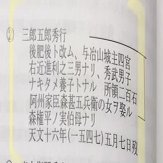 ② 三郎五郎秀行
後肥後ト改ム、与冶山城主四宮
右近進利之三男ナリ、秀武男子
ナキタメ養子トナル 所領二百石
阿州家臣森甚五兵衛の女ヲ娶ル
森権平ノ実伯母ナリ
天文十六年(一五四七)五月七日歿